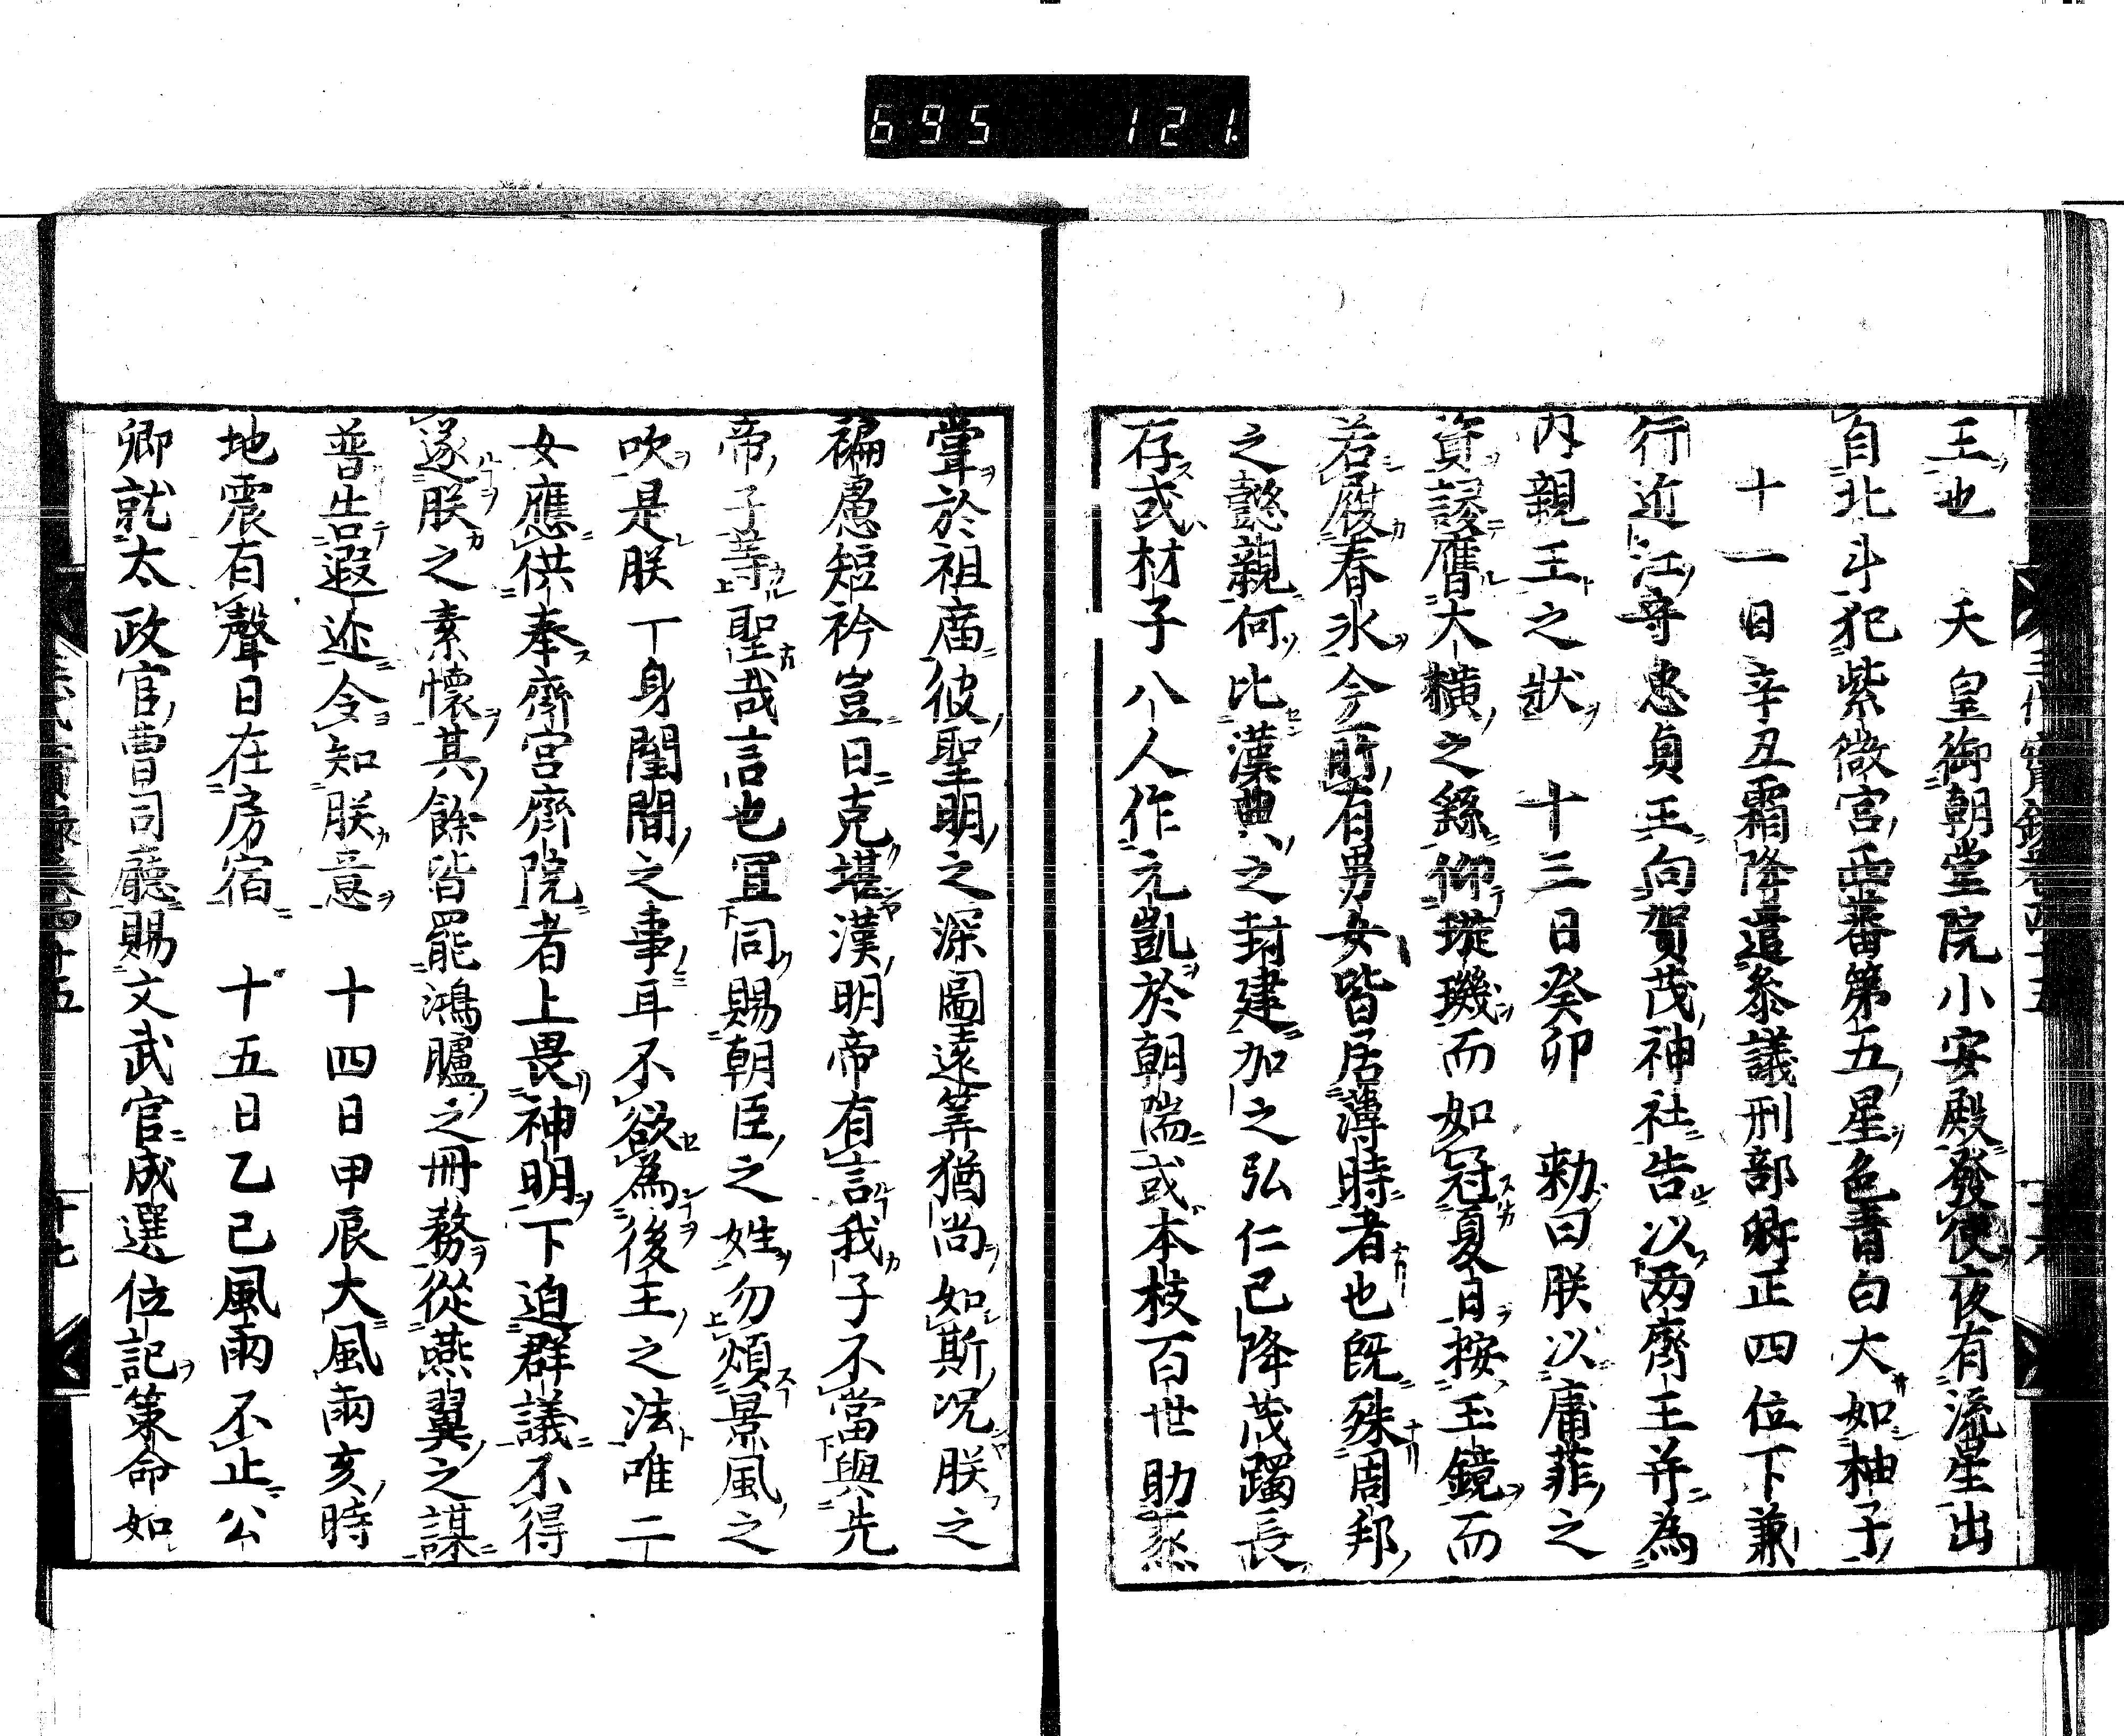 695 121
王也　天皇御朝堂院小安殿發使夜有流星出
自北斗犯紫微宮西蕃第五星色青白大如柚子
十一日辛丑霜降遣參議刑部卿正四位下兼
行近江守忠貞王向賀茂神社告以兩齊王并為
内親王之狀　十三日癸卯　勅曰朕以庸菲之
資謬膺大横之繇仰璇璣而如冠夏日按玉鏡而
若履春氷今所有男女皆居薄時者也既殊周邦
之懿親何比漢典之封建加之弘仁已降茂躅長
存或材子八人作元凱於朝端或本枝百世助蒸
甞於祖庿彼聖明之深圖遠筭猶尚如斯况朕之
褊慮短衿豈曰克堪漢明帝有言我子不當與先
帝子等聖哉言也冝同賜朝臣之姓勿煩景風之
吹是朕一身閨閫之事耳不欲為後王之法唯二
女應供奉齊宮齊院者上畏神明下迫群議不得
遂朕之素懷其餘皆罷鴻臚之冊務從燕翼之謀
普告遐迩令知朕意　十四日甲辰大風雨亥時
地震有聲日在房宿　十五日乙巳風雨不止公
卿就太政官曹司廳賜文武官成選位記策命如